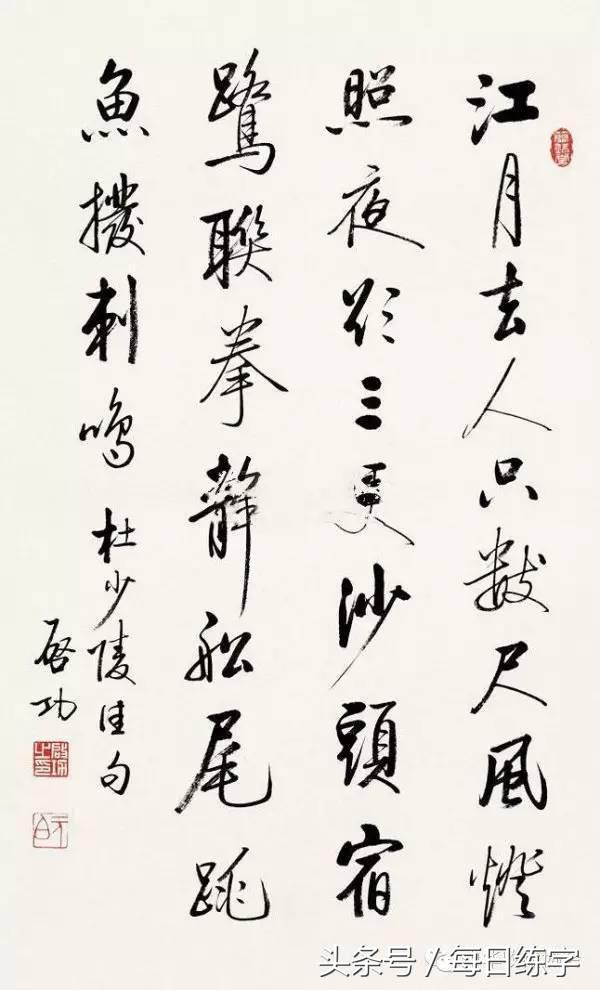 江月去人只數尺風燈
照夜欲三更沙頭宿
鷺聯拳靜船尾跳
魚撥刺鳴 杜少陵佳句
启功
元白
头条号／每日练字